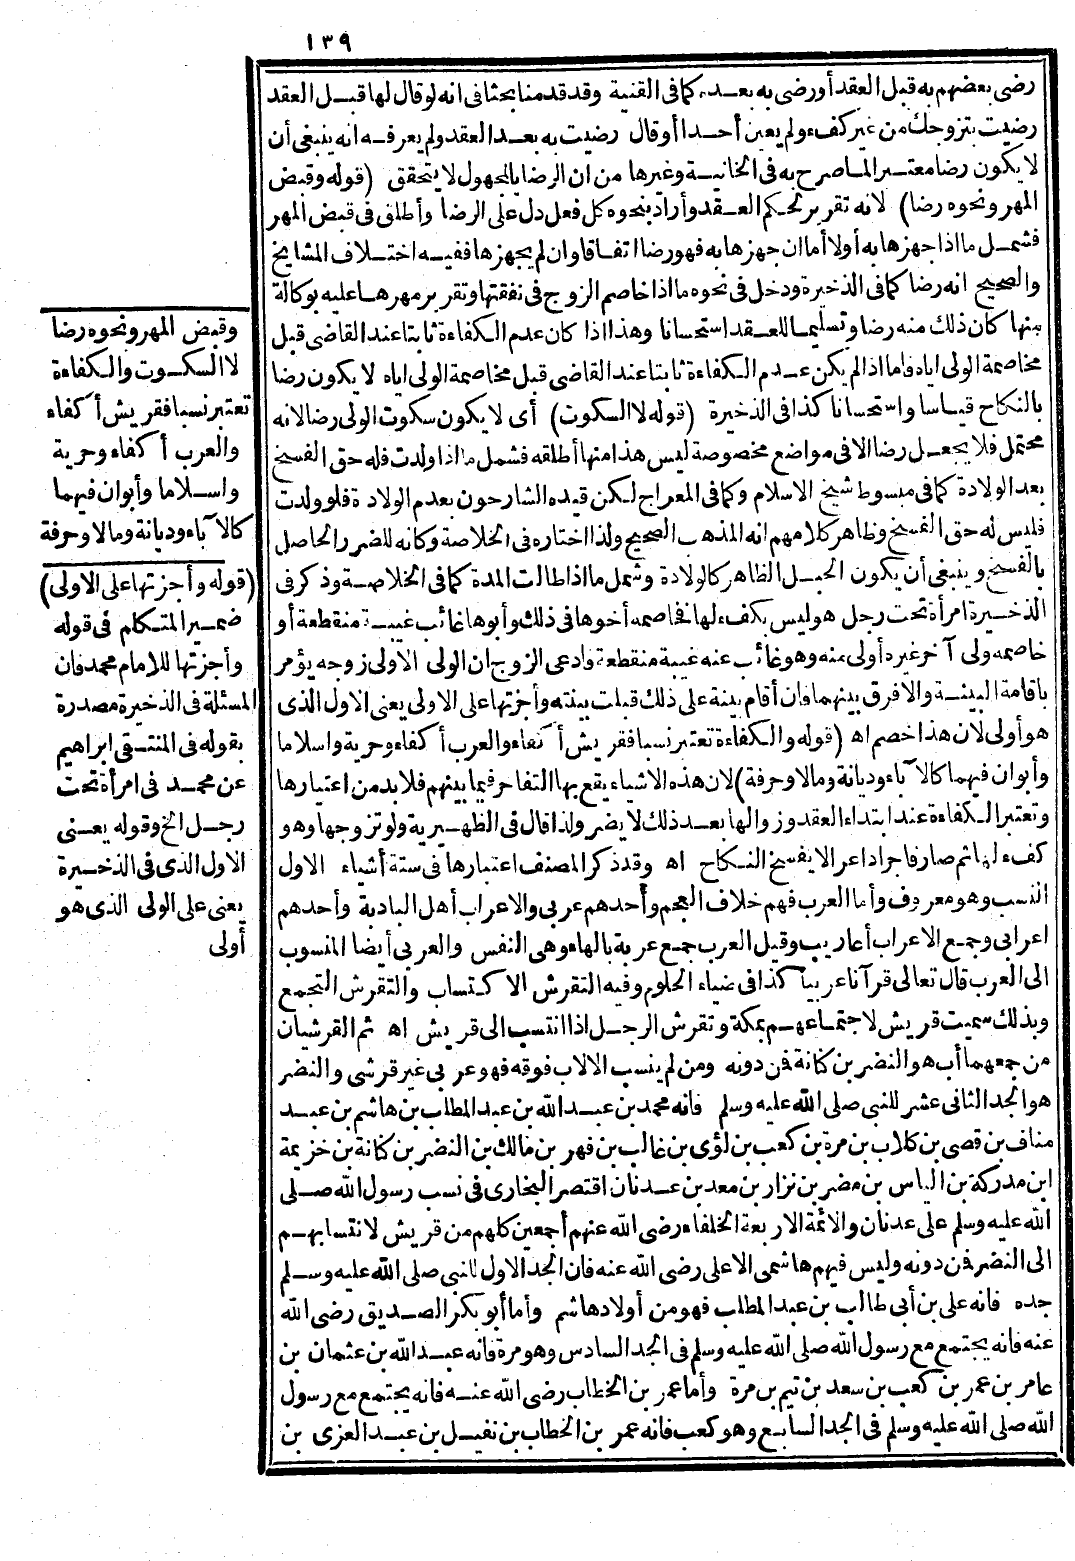 ١٣٩
رضى بعضهم به قبل العقد أو رضى به بعده كما فى القنية وقد قدمنا بحثا فى انه لو قال لها قبل العقد
رضيت بتزوجك من غير كفء ولم يعين أحدا أو قال رضيت به بعد العقد ولم يعرفه انه ينبغى أن
لا يكون رضا معتبرا لما صرح به فى الخانية وغيرها من ان الرضا بالمجهول لا يتحقق (قوله وقبض
المهر ونحوه رضا) لانه تقرير لحكم العقد وأراد بنحوه كل فعل دل على الرضا وأطلق فى قبض المهر
فشمل ما اذا جهزها به أولا أما ان جهزها به فهو رضا اتفاقا وان لم يجهزها ففيه اختلاف المشايخ
والصحيح انه رضا كما فى الذخيرة ودخل فى نحوه ما اذا خاصم الزوج فى نفقتها وتقرير مهرها عليه بوكالة
منها كان ذلك منه رضا وتسليما للعقد استحسانا وهذا اذا كان عدم الكفاءة ثابتا عند القاضى قبل
مخاصمة الولى اياه فاما اذا لم يكن عدم الكفاءة ثابتا عند القاضى قبل مخاصمة الولى اياه لا يكون رضا
بالنكاح قياسا واستحسانا كذا فى الذخيرة (قوله لا السكوت) أى لا يكون سكوت الولى رضا لانه
محتمل فلا يجعل رضا الا فى مواضع مخصوصة ليس هذا منها أطلقه فشمل ما اذا ولدت فله حق الفسخ
بعد الولادة كما فى مبسوط شيخ الاسلام وكما فى المعراج لكن قيده الشارحون بعدم الولادة فلو ولدت
فليس له حق الفسخ وظاهر كلامهم انه المذهب الصحيح ولذا اختاره فى الخلاصة وكانه للضرر الحاصل
بالفسخ وينبغى أن يكون الحبل الظاهر كالولادة وشمل ما اذا طالت المدة كما فى الخلاصة وذكر فى
الذخيرة امرأة تحت رجل هو ليس بكفء لها فخاصمه أخوها فى ذلك وأبوها غائب غيبة منقطعة أو
خاصمه ولى آخر غيره أولى منه وهو غائب عنه غيبة منقطعة وادعى الزوج ان الولى الاولى زوجه يؤمر
باقامة البينة والا فرق بينهما فان أقام بينة على ذلك قبلت بينته وأجزتها على الاولى يعنى الاول الذى
هو أولى لان هذا خصم اه (قوله والكفاءة تعتبر نسبا فقريش أكفاء والعرب أكفاء وحرية واسلاما
وأبوان فيهما كالآباء وديانة ومالا وحرفة) لان هذه الاشياء يقع بها التفاخر فيما بينهم فلا بد من اعتبارها
وتعتبر الكفاءة عند ابتداء العقد وزوالها بعد ذلك لا يضر ولذا قال فى الظهيرية ولو تزوجها وهو
كفء لها ثم صار فاجرا داعرا لا يفسخ النكاح اه وقد ذكر المصنف اعتبارها فى ستة أشياء الاول
النسب وهو معروف وأما العرب فهم خلاف العجم وأحدهم عربى والاعراب أهل البادية وأحدهم
اعرابى وجمع الاعراب أعاريب وقيل العرب جمع عربة بالهاء وهى النفس والعربى أيضا المنسوب
الى العرب قال تعالى قرآنا عربيا كذا فى ضياء الحلوم وفيه التقرش الاكتساب والتقرش التجمع
وبذلك سميت قريش لاجتماعهم بمكة وتقرش الرجل اذا انتسب الى قريش اه ثم القرشيان
من جمعهما أب هو النضر بن كنانة فمن دونه ومن لم ينسب الا لاب فوقه فهو عربى غير قرشى والنضر
هو الجد الثانى عشر للنبى صلى الله عليه وسلم فانه محمد بن عبد الله بن عبد المطلب بن هاشم بن عبد
مناف بن قصى بن كلاب بن مرة بن كعب بن لؤى بن غالب بن فهر بن مالك بن النضر بن كنانة بن خزيمة
ابن مدركة بن الياس بن مضر بن نزار بن معد بن عدنان اقتصر البخارى فى نسب رسول الله صلى
الله عليه وسلم على عدنان والائمة الاربعة الخلفاء رضى الله عنهم أجمعين كلهم من قريش لانتسابهم
الى النضر فمن دونه وليس فيهم هاشمى الا على رضى الله عنه فان الجد الاول للنبى صلى الله عليه وسلم
جده فانه على بن أبى طالب بن عبد المطلب فهو من أولاد هاشم وأما أبو بكر الصديق رضى الله
عنه فانه يجتمع مع رسول الله صلى الله عليه وسلم فى الجد السادس وهو مرة فانه عبد الله بن عثمان بن
عامر بن عمر بن كعب بن سعد بن تيم بن مرة وأما عمر بن الخطاب رضى الله عنه فانه يجتمع مع رسول
الله صلى الله عليه وسلم فى الجد السابع وهو كعب فانه عمر بن الخطاب بن نفيل بن عبد العزى بن
وقبض المهر ونحوه رضا
لا السكوت والكفاءة
تعتبر نسبا فقريش أكفاء
والعرب أكفاء وحرية
واسلاما وأبوان فيهما
كالآباء وديانة ومالا وحرفة
(قوله وأجزتها على الاولى)
ضمير المتكلم فى قوله
وأجزتها للامام محمد فان
المسئلة فى الذخيرة مصدرة
بقوله فى المنتقى ابراهيم
عن محمد فى امرأة تحت
رجل الخ وقوله يعنى
الاول الذى فى الذخيرة
يعنى على الولى الذى هو
أولى